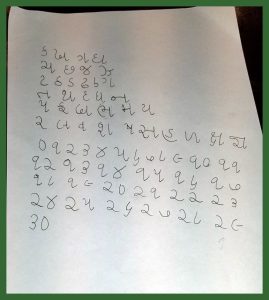 ક ખ ગ ઘ
ચ છ જ ઝ
ટ ઠ ડ ઢ ણ
ત થ દ ધ ન
પ ફ બ ભ મ ય
ર લ વ શ ષ સ હ ળ ક્ષ જ્ઞ
૦ ૧ ૨ ૩ ૪ ૫ ૬ ૭ ૮ ૯ ૧૦ ૧૧
૧૨ ૧૩ ૧૪ ૧૫ ૧૬ ૧૭
૧૮ ૧૯ ૨૦ ૨૧ ૨૨ ૨૩
૨૪ ૨૫ ૨૬ ૨૭ ૨૮ ૨૯
૩૦